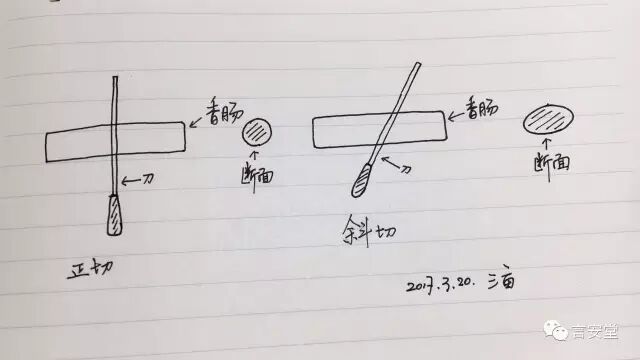 香肠
断面
刀
正切
香肠
断面
刀
斜切
2017.3.20. 三亩
言安堂